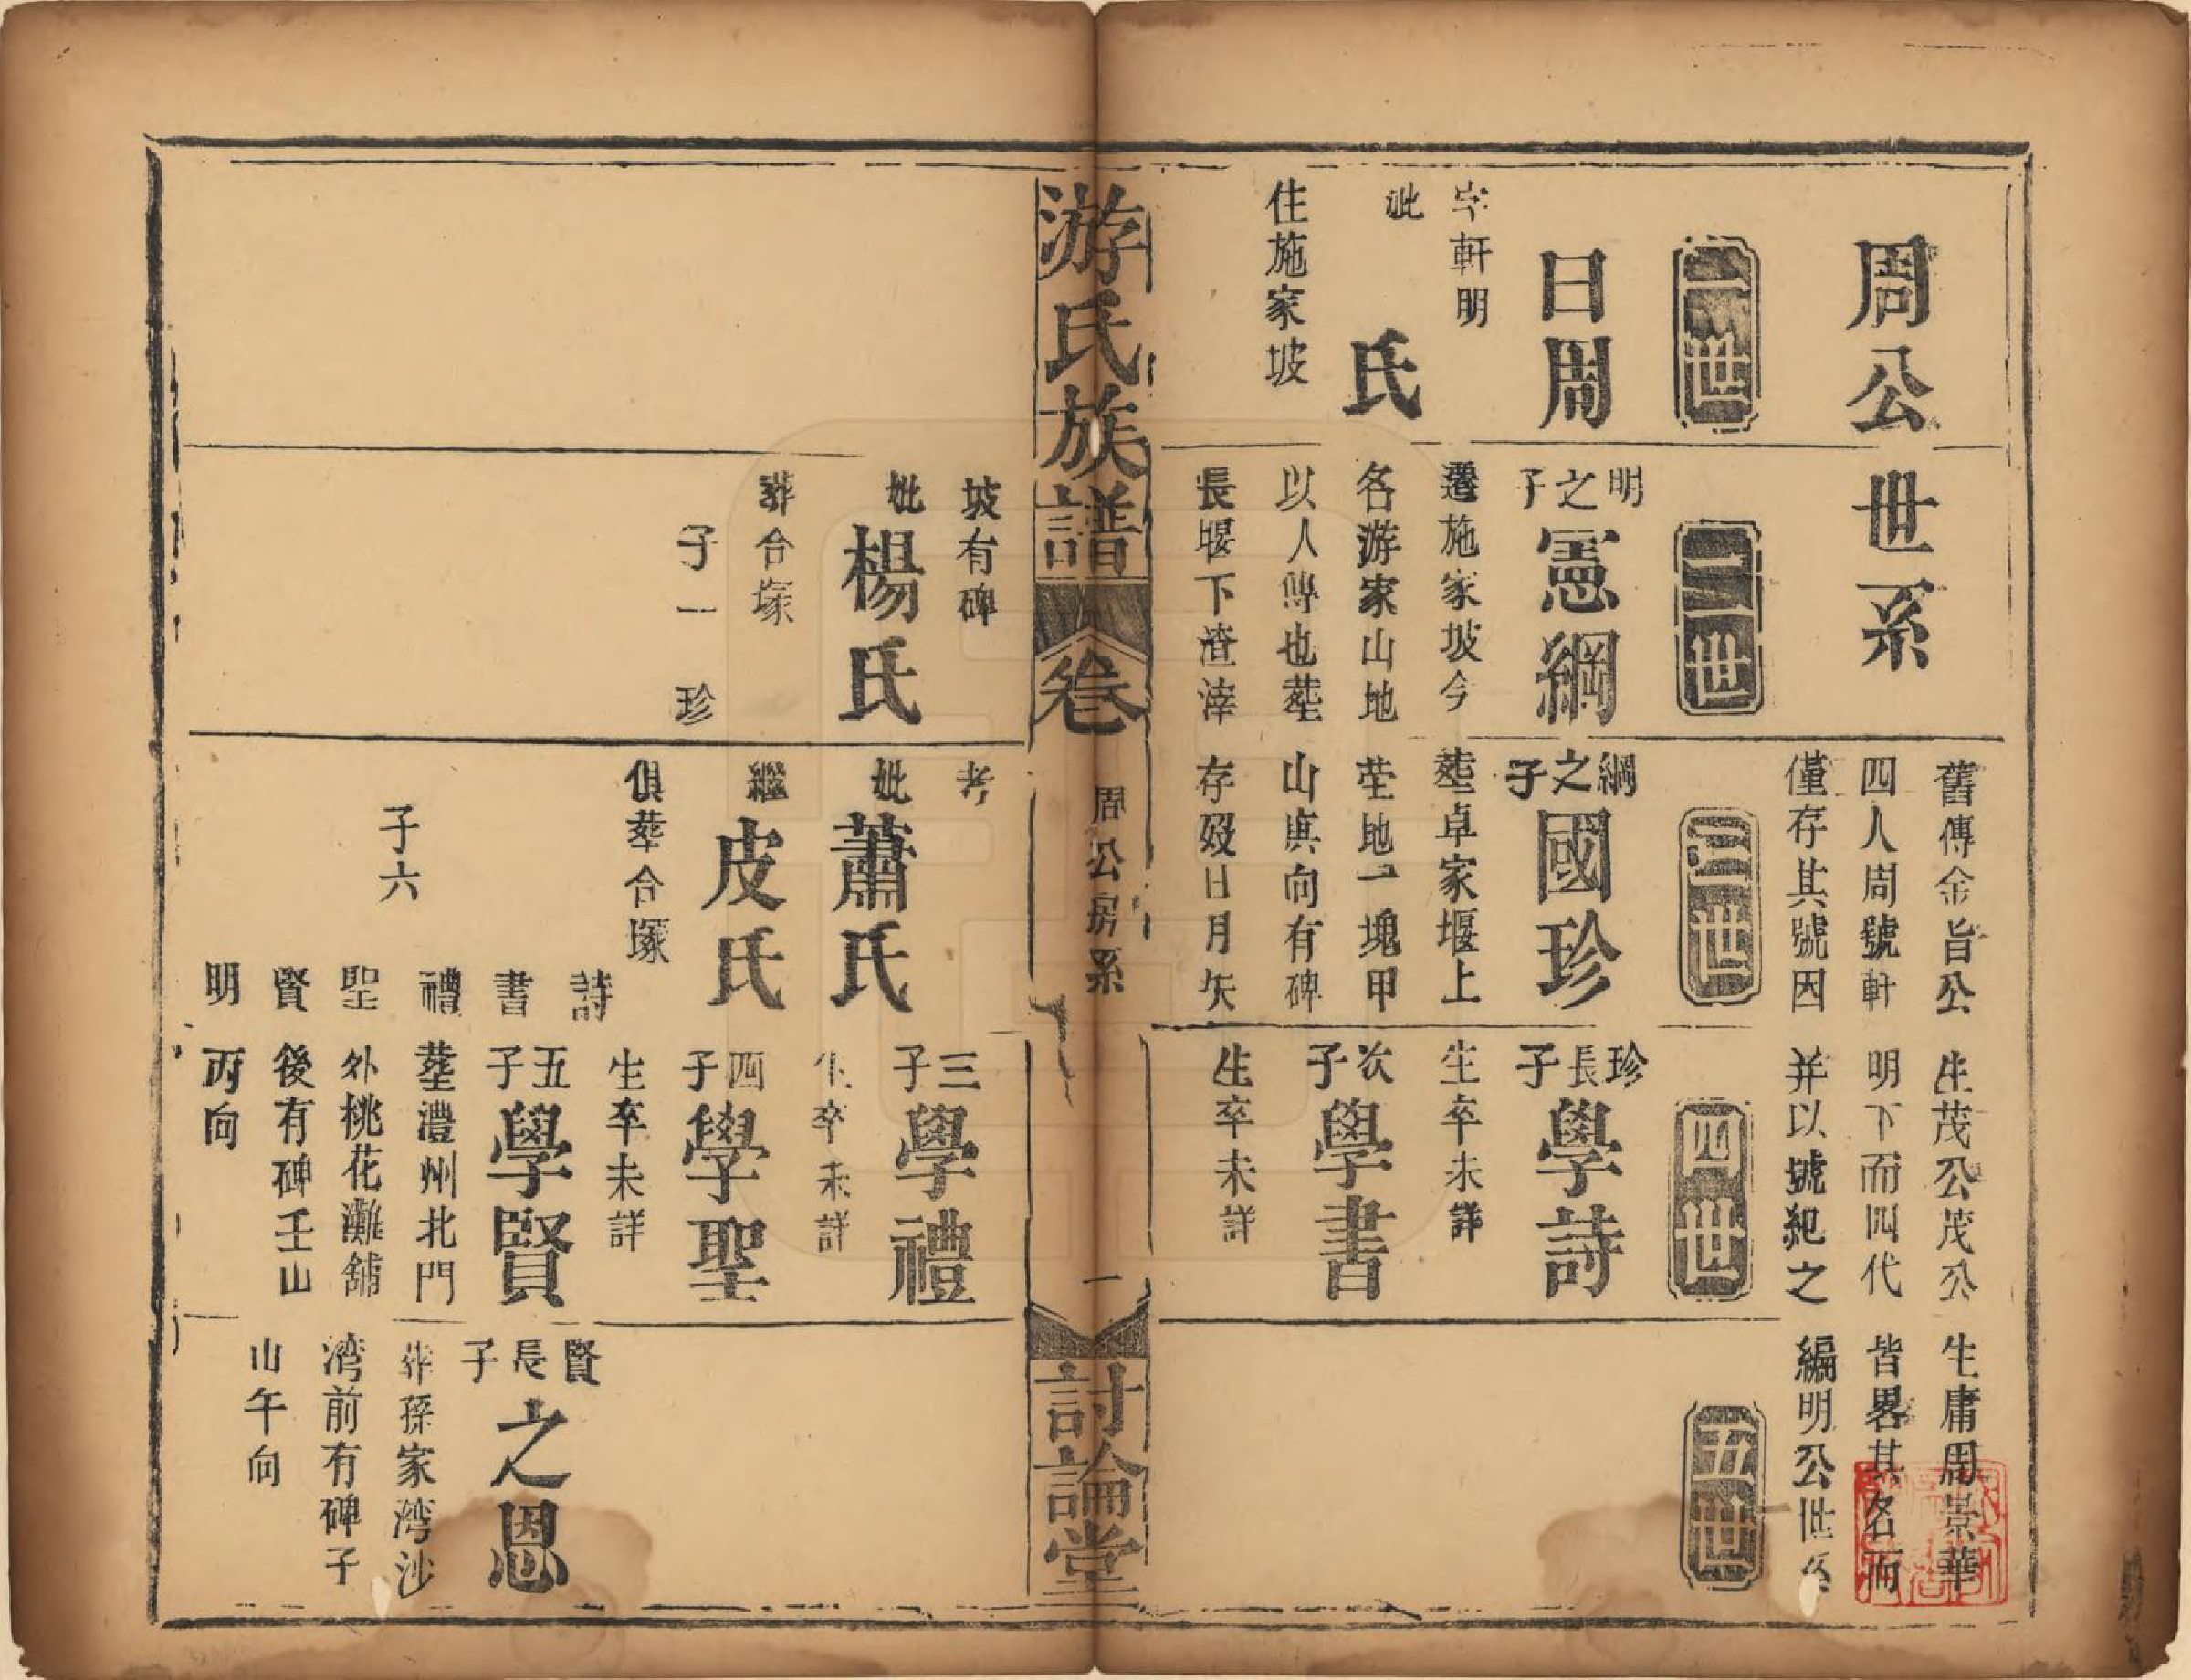 周公世系
舊傳金旨公生茂公茂公生庸周景華
四人周號軒明下而四代皆畧其名而
僅存其號因并以號紀之編明公世系
一世
日周
字軒明
妣 氏
住施家坡
二世
明之子
憲綱
遷施家坡今
名游家山地
以人傳也塟
長堰下渣滓
三世
綱之子
國珍
塟卓家堰上
塋地一塊甲
山庚向有碑
存歿日月矢
四世
珍長子
學詩
生卒未詳
次子
學書
生卒未詳
五世
游氏族譜
卷
周公房系
一
討論堂
坡有碑
妣楊氏
葬合塚
子一 珍
考
妣蕭氏
繼皮氏
俱葬合塚
子六
詩
書
禮
聖
賢
明
三子
學禮
生卒未詳
四子
學聖
生卒未詳
五子
學賢
塟澧州北門
外桃花灘舖
後有碑壬山
丙向
賢長子
之恩
葬孫家湾沙
湾前有碑子
山午向